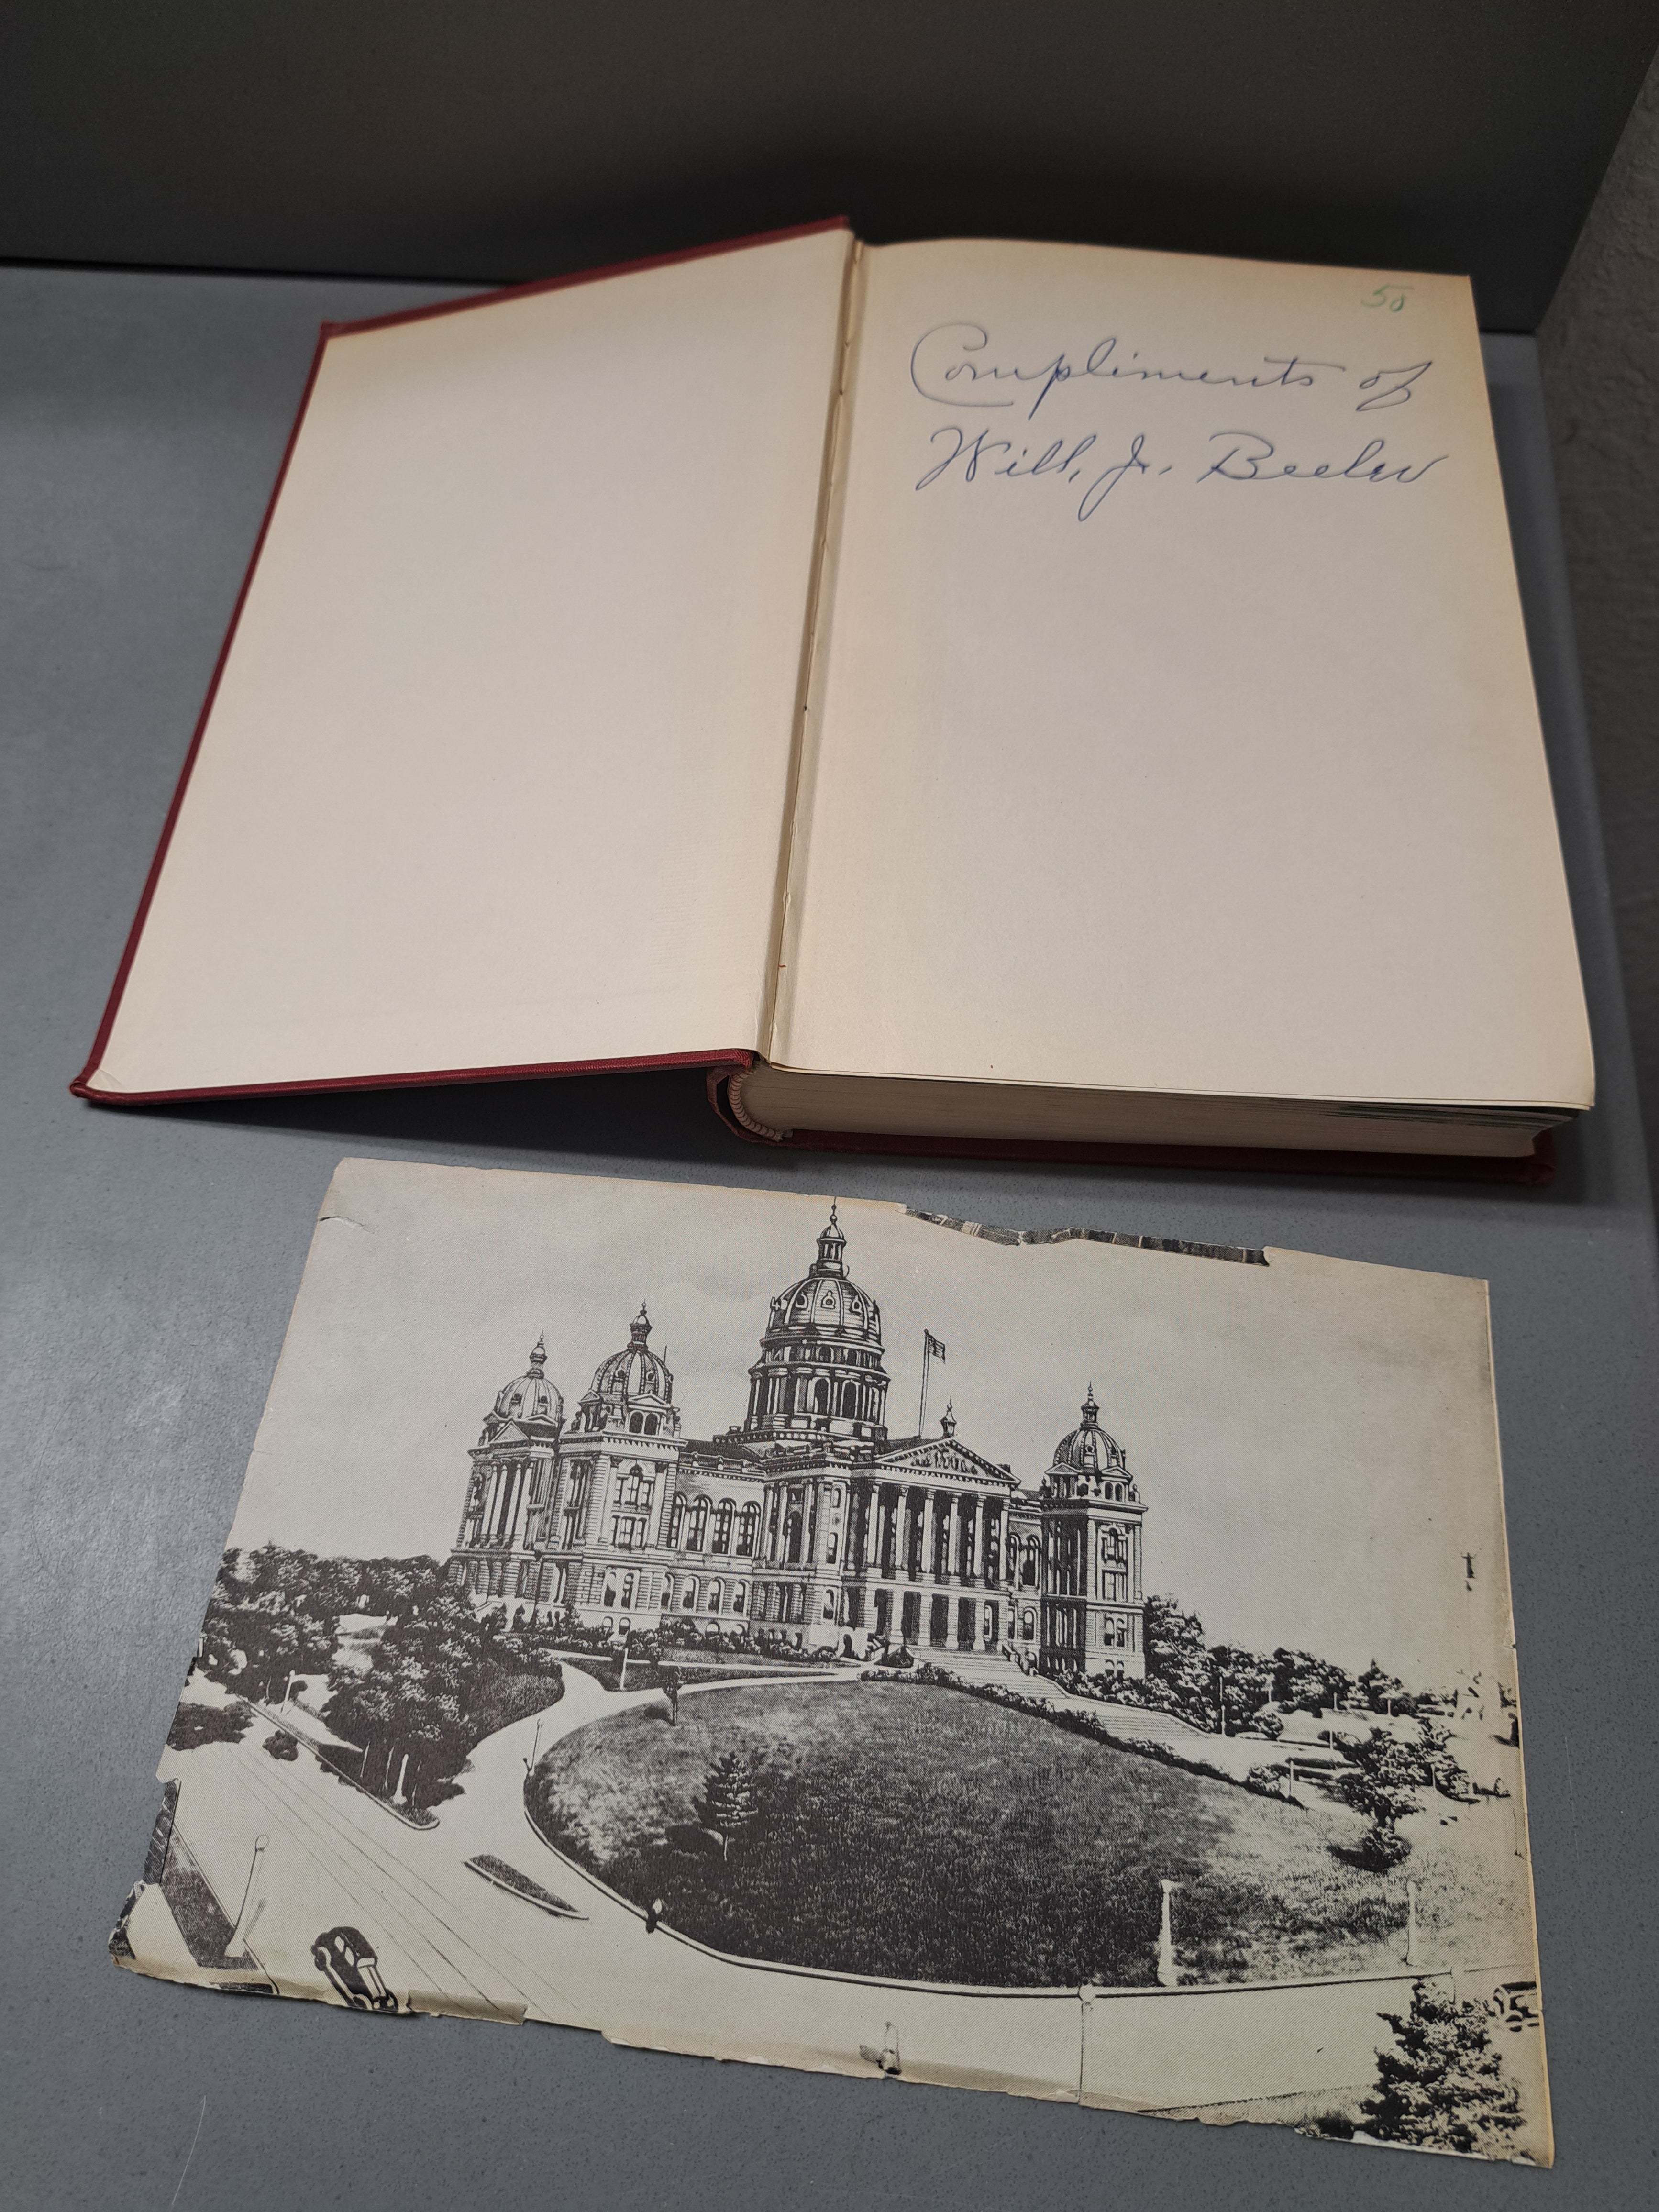 50
Compliments of
Will, Jr. Beeler